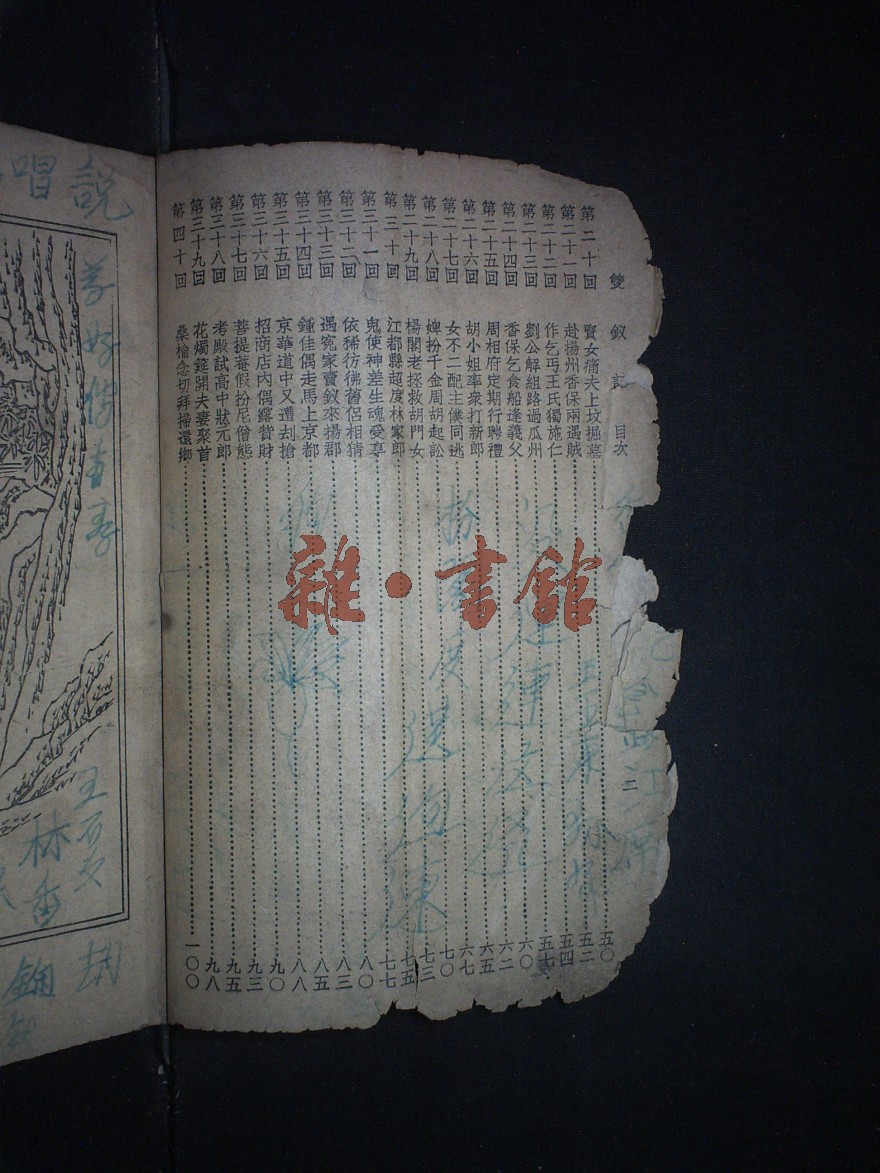 雙釵記 目次 二
第二十回 賢女痛夫上墳掘墓 五〇
第二十一回 赴揚州香保兩遇賊 五二
第二十二回 作乞丐王氏獨施仁 五四
第二十三回 劉公解組路過瓜州 五七
第二十四回 香保乞食船逢義父 六〇
第二十五回 周相府定期行聘禮 六二
第二十六回 胡小姐率衆打新郎 六五
第二十七回 女不二配主僕同逃 六七
第二十八回 婢扮千金周胡起訟 七〇
第二十九回 楊閣老拯救胡門女 七三
第三十回 江都縣超度林家郎 七五
第三十一回 鬼使神差生魂受享 七七
第三十二回 依稀彷彿舊侶相猜 八〇
第三十三回 遇寃家賣釵來揚郡 八三
第三十四回 鍾佳偶走馬上京都 八五
第三十五回 京華道中又遭刦搶 八八
第三十六回 招商店內偶露貲財 九〇
第三十七回 菩提菴假扮尼僧態 九三
第三十八回 考殿試高中狀元郎 九五
第三十九回 花燭筵開夫妻聚首 九八
第四十回 桑榆念切拜掃還鄉 一〇〇
說唱
林香
雜·書館